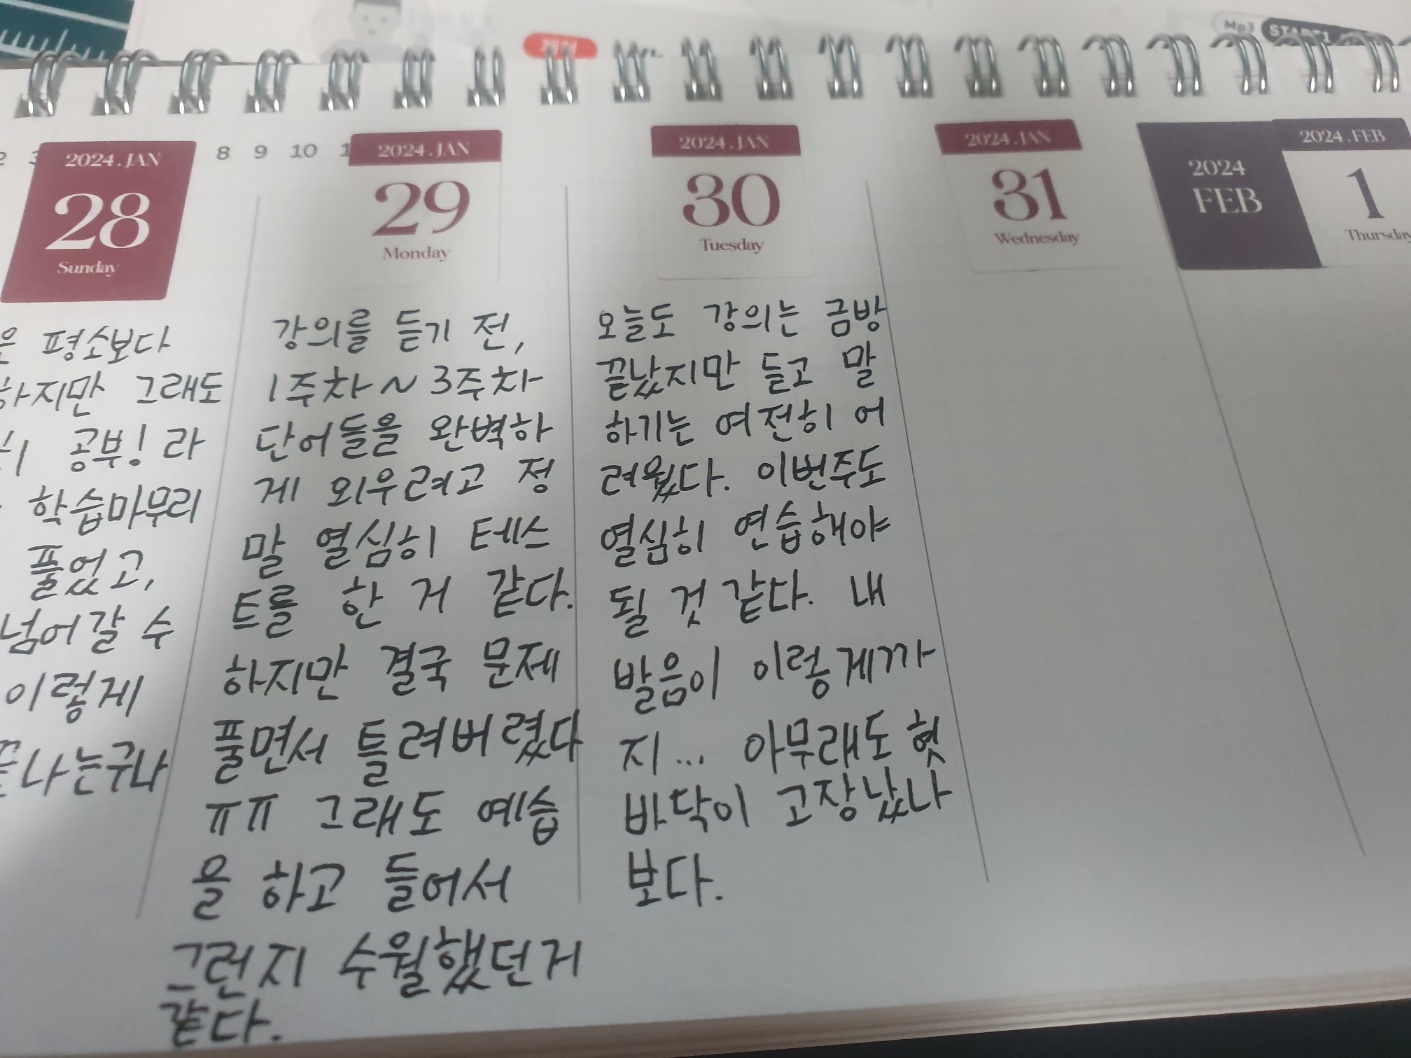 Mp3
2024.JAN
28
Sunday
평소보다
하지만 그래도
공부! 라
학습마무리
풀었고,
넘어갈 수
이렇게
끝나는구나
8 9 10
2024.JAN
29
Monday
강의를 듣기 전,
1주차~3주차
단어들을 완벽하
게 외우려고 정
말 열심히 테스
트를 한 거 같다.
하지만 결국 문제
풀면서 틀려버렸다
ㅠㅠ 그래도 예습
을 하고 들어서
그런지 수월했던거
같다.
2024.JAN
30
Tuesday
오늘도 강의는 금방
끝났지만 듣고 말
하기는 여전히 어
려웠다. 이번주도
열심히 연습해야
될 것 같다. 내
발음이 이렇게까
지... 아무래도 혓
바닥이 고장났나
보다.
2024.JAN
31
Wednesday
2024
FEB
2024.FEB
1
Thursday